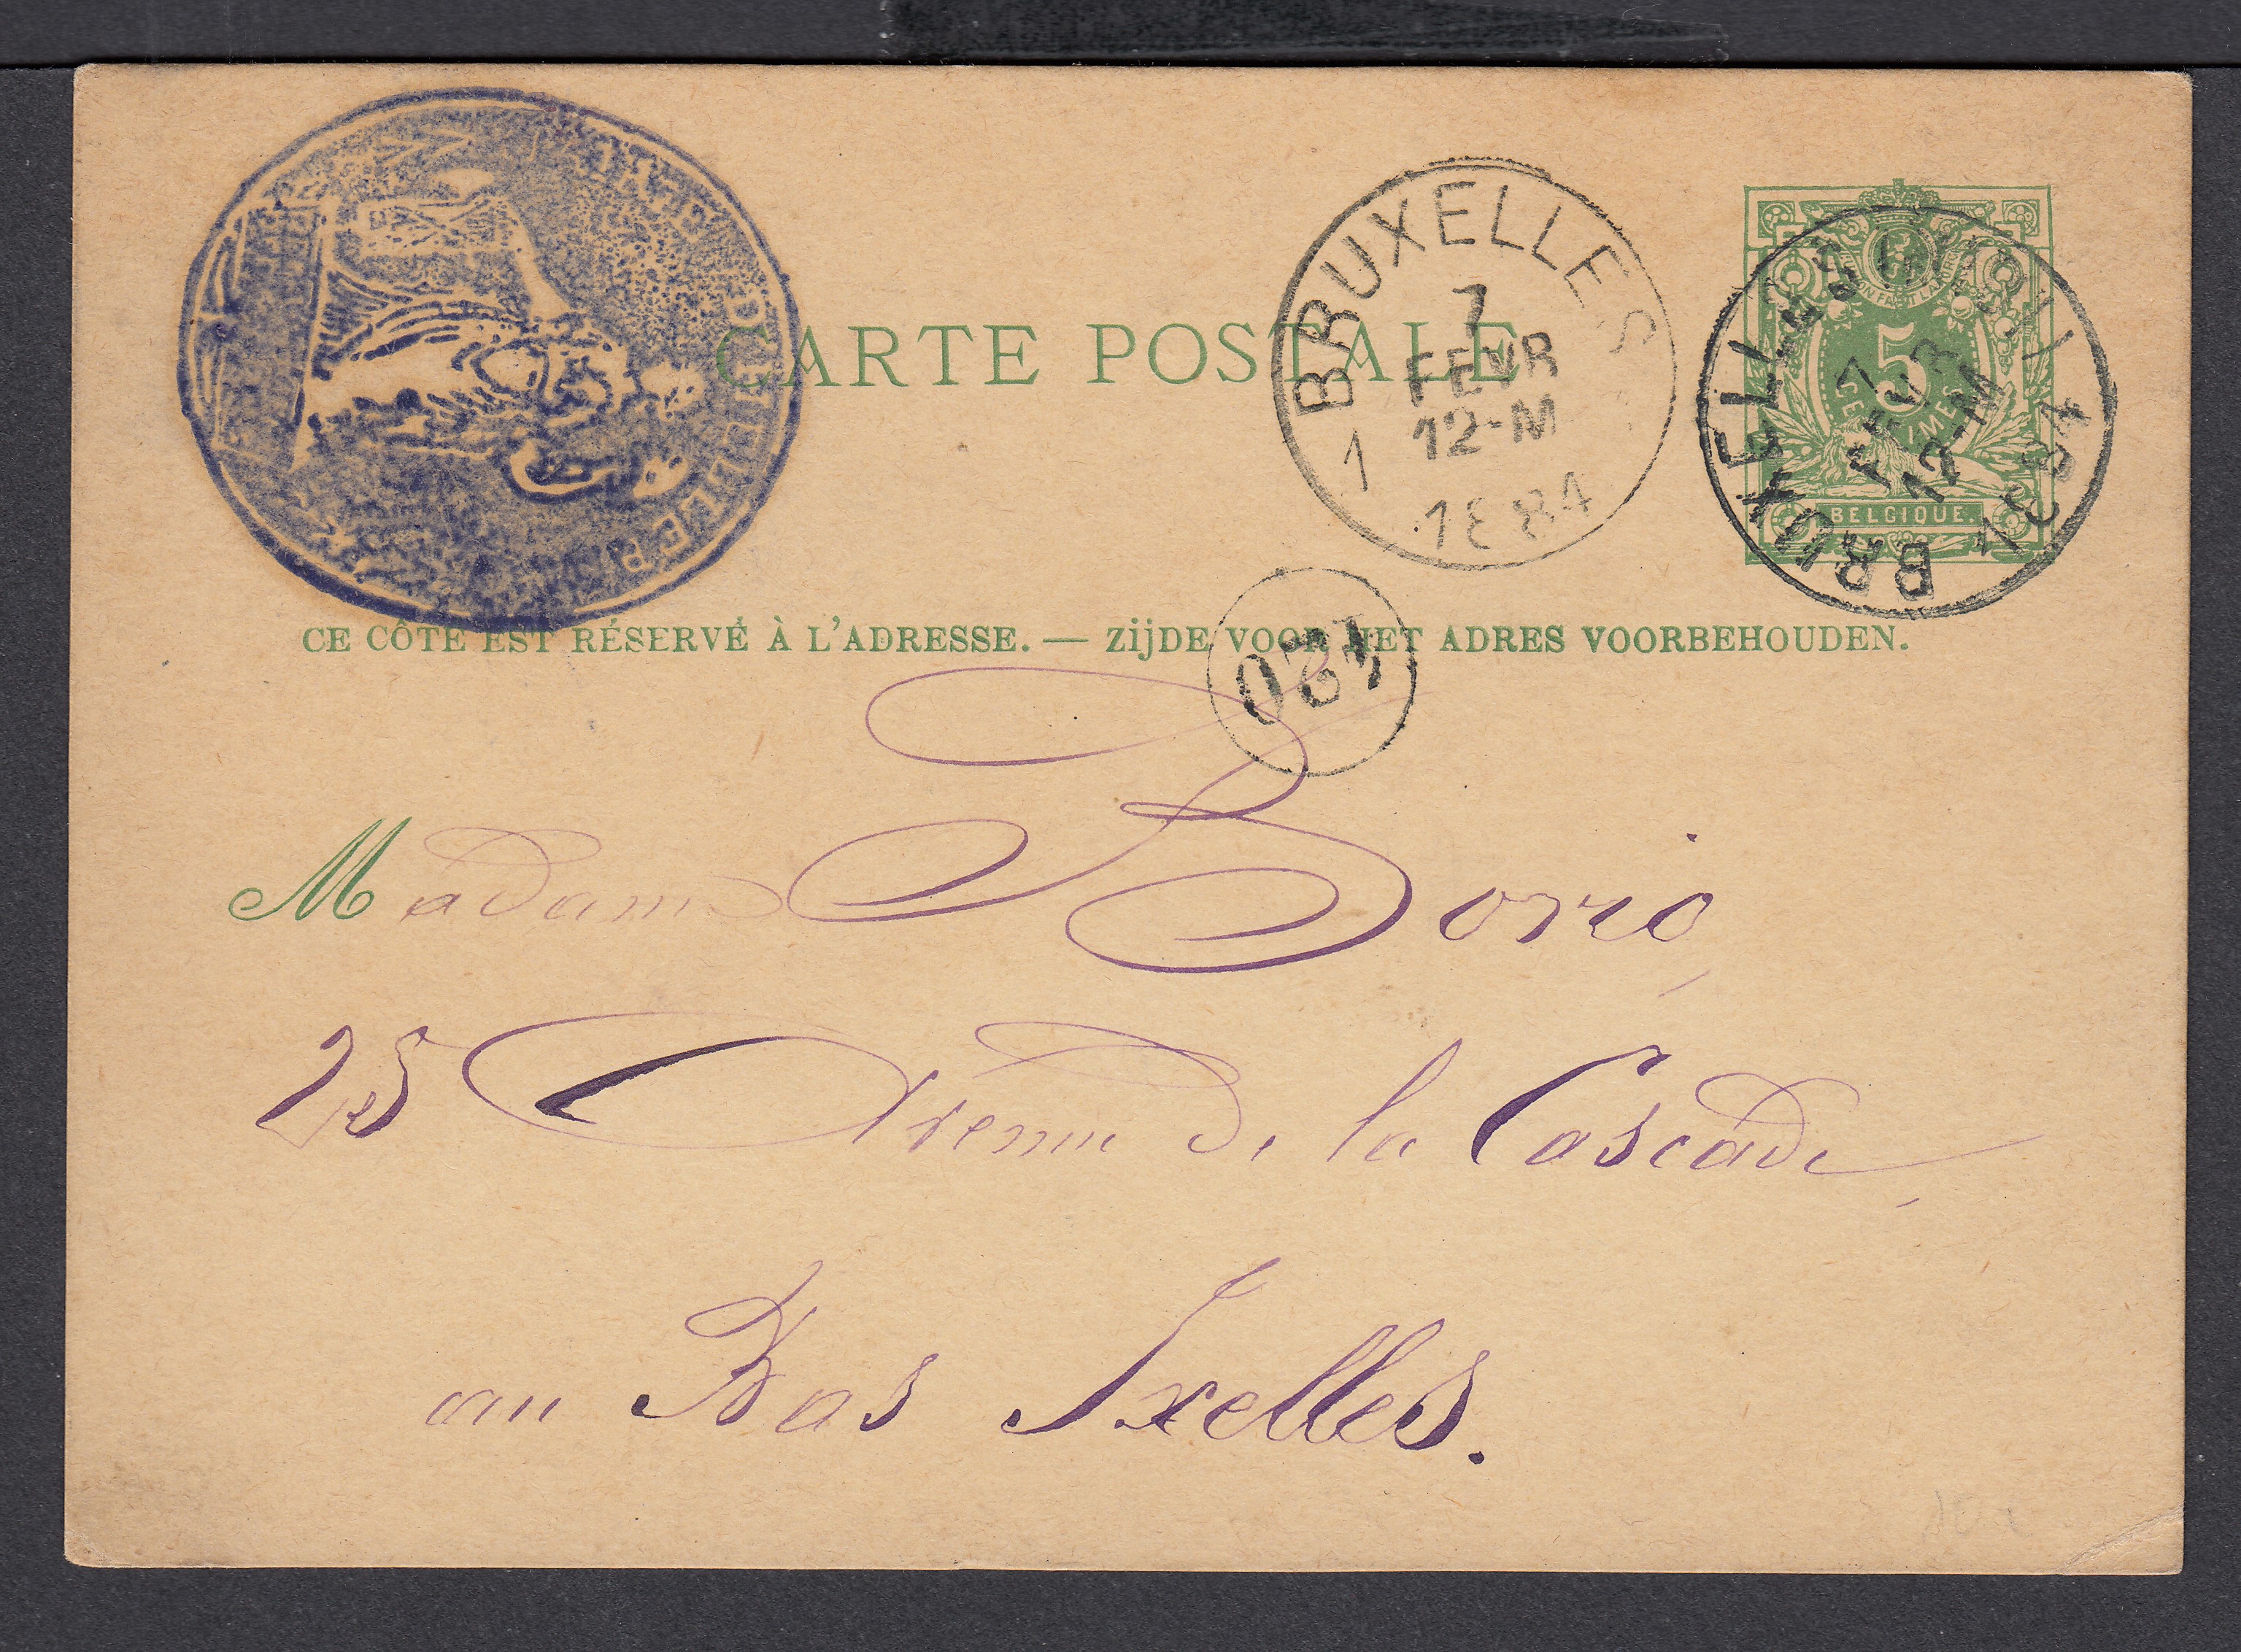 CARTE POSTALE
BRUXELLES
7
FEVR
12-M
1
1884
5
CENTIMES
BELGIQUE.
BRUXELLES
7
FEVR
12-M
1884
CE CÔTÉ EST RÉSERVÉ À L'ADRESSE. — ZIJDE VOOR HET ADRES VOORBEHOUDEN.
420
Madame Borio,
25 Avenue de la Cascade,
au Bas Ixelles.